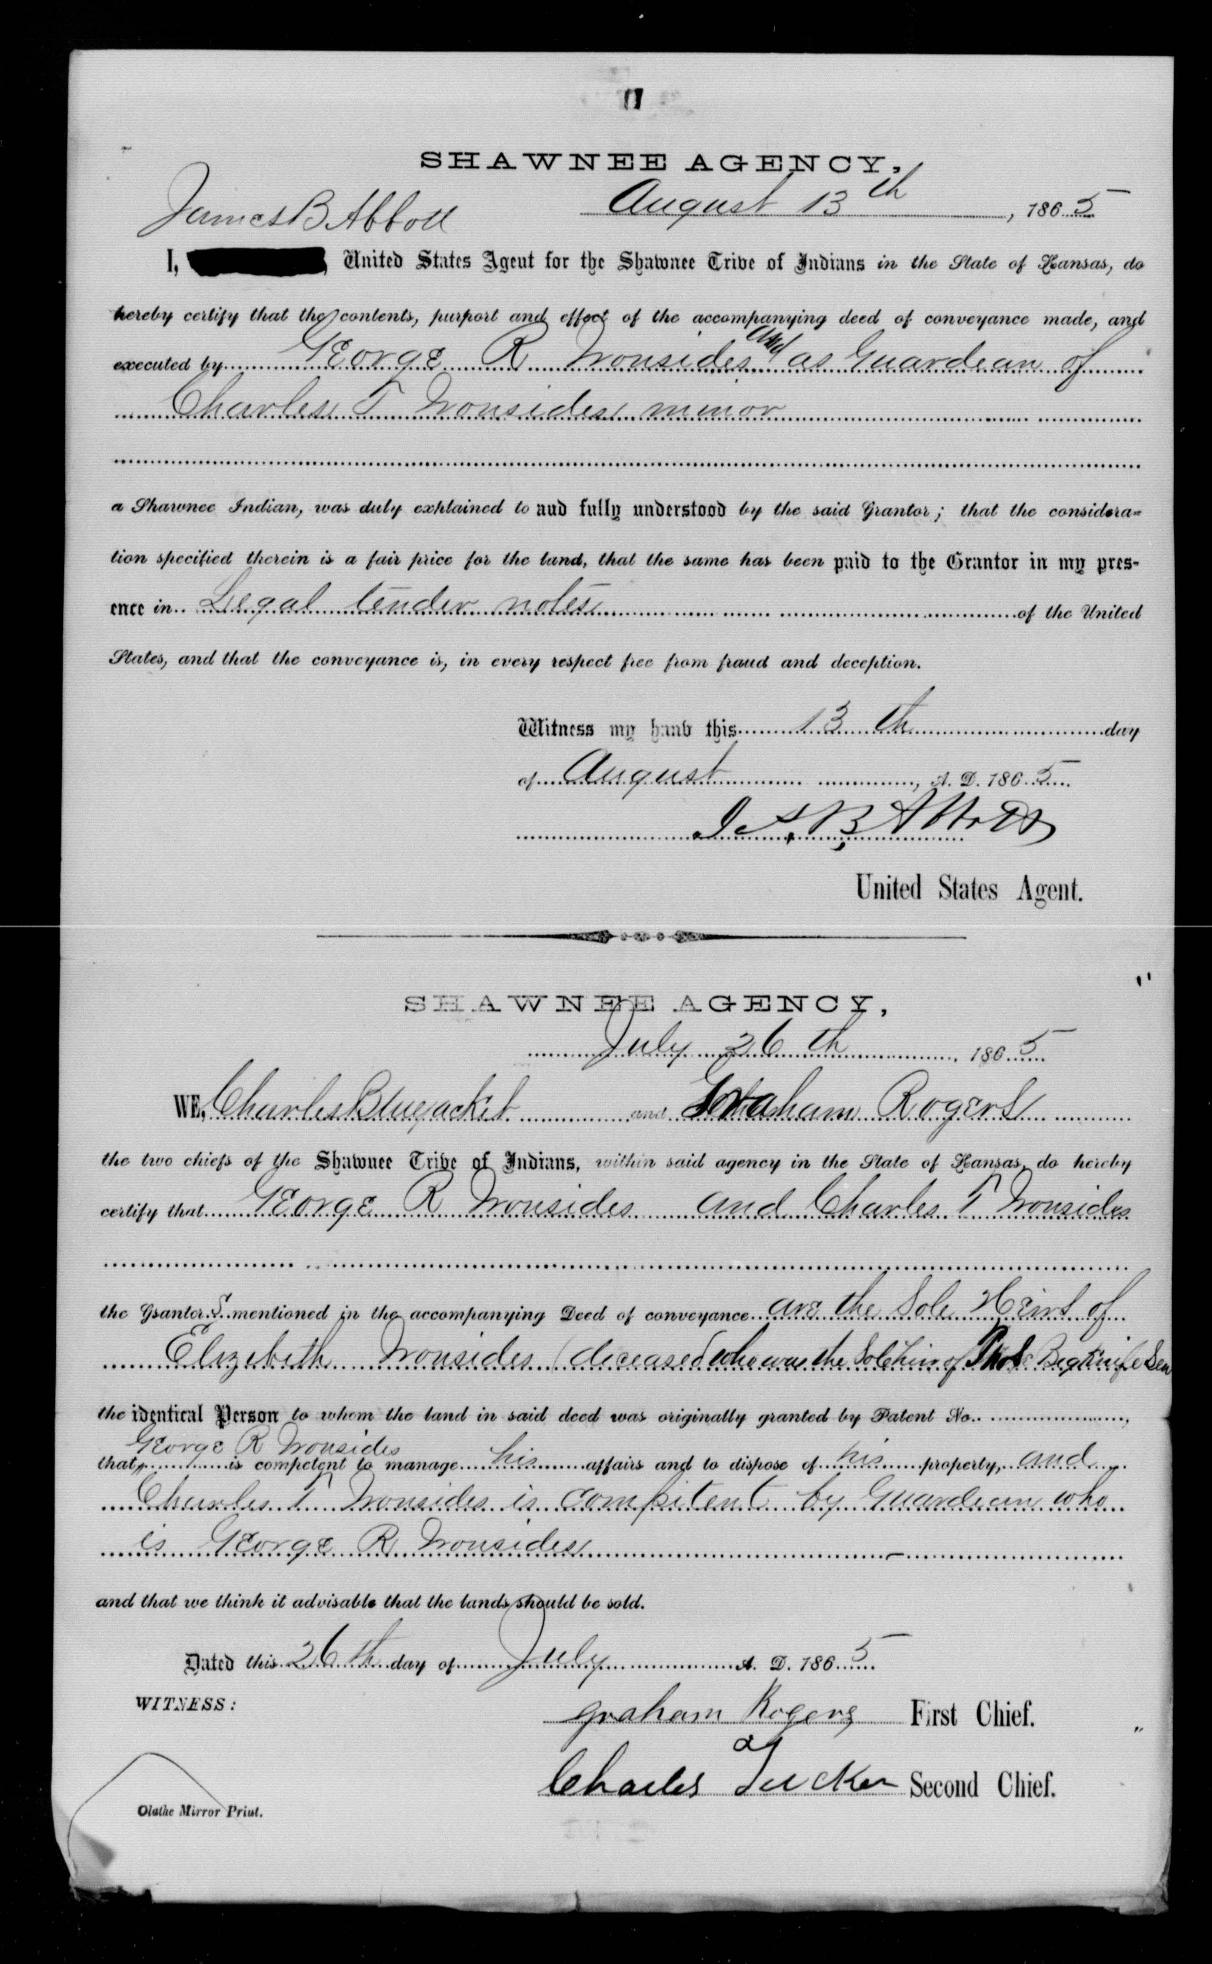 SHAWNEE AGENCY,
August 13th, 1865
James B Abbott
I, United States Agent for the Shawnee Tribe of Indians in the State of Kansas, do
hereby certify that the contents, purport and effect of the accompanying deed of conveyance made, and
executed by George R Ironsides and as Guardean of
Charles T Ironsides minor
a Shawnee Indian, was duly explained to and fully understood by the said Grantor; that the considera-
tion specified therein is a fair price for the land, that the same has been paid to the Grantor in my pres-
ence in Legal tender notes of the United
States, and that the conveyance is, in every respect free from fraud and deception.
Witness my hand this 13th day
of August, A. D. 1865
Jas. B. Abbott
United States Agent.
SHAWNEE AGENCY,
July 26th, 1865
WE, Charles Bluejacket and Graham Rogers
the two chiefs of the Shawnee Tribe of Indians, within said agency in the State of Kansas, do hereby
certify that George R Ironsides and Charles T Ironsides
the Grantors mentioned in the accompanying Deed of conveyance are the Sole Heirs of
Elizebeth Ironsides (deceased who was the Sole heir of Thos Big Knife Sen
the identical Person to whom the land in said deed was originally granted by Patent No.,
George R Ironsides
that is competent to manage his affairs and to dispose of his property, and
Charles T Ironsides is compitent by Guardean who
is George R Ironsides
and that we think it advisable that the lands should be sold.
Dated this 26th day of July A. D. 1865
WITNESS:
Graham Rogers First Chief.
Charles Tucker Second Chief.
Olathe Mirror Print.